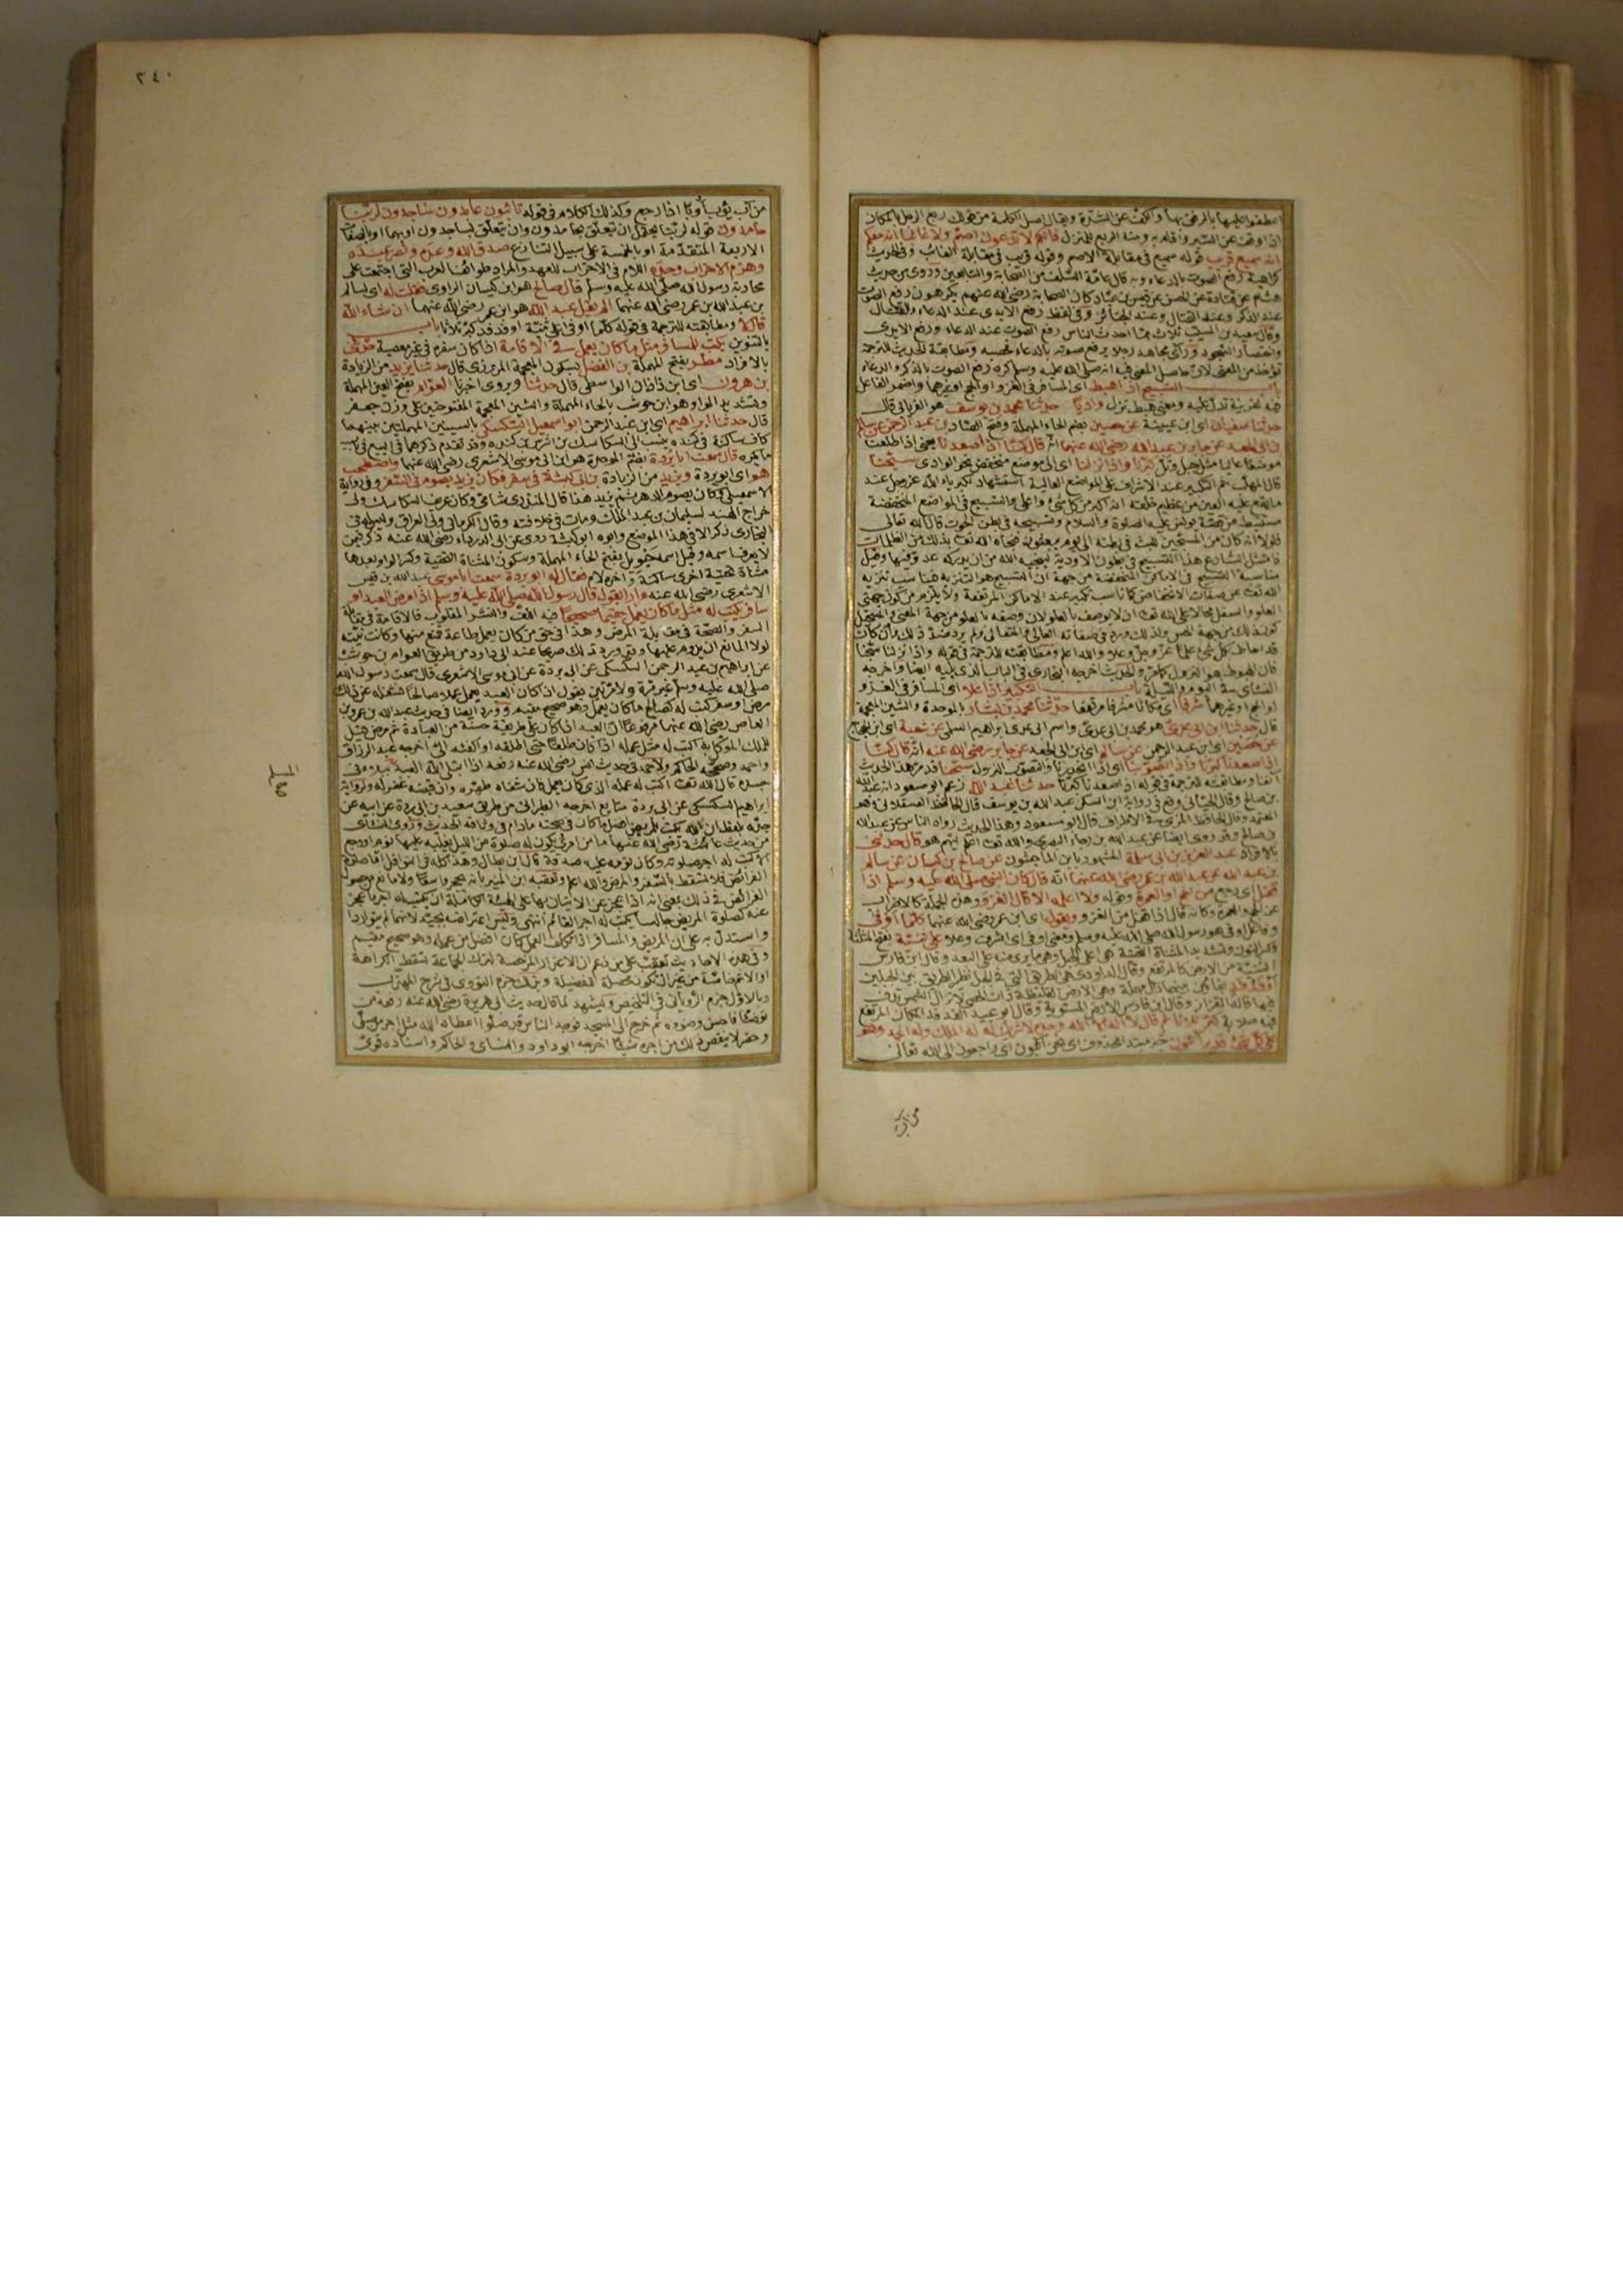 اعطفوا عليها بالرفق بها والكف عن الشدة ويقال اصل الكلمة من قولك ربع الرجل بالمكان
اذا وقف عن السير واقام به ومنه الربع للمنزل فانكم لا تدعون اصم ولا غائبا انه معكم
انه سميع قريب قوله سميع في مقابلة الاصم وقوله قريب في مقابلة الغائب وفي الحديث
كراهية رفع الصوت بالدعاء وبه قال عامة السلف من الصحابة والتابعين وروى من حديث
هشام عن قتادة عن الحسن عن قيس بن عباد كان الصحابة رضي الله عنهم يكرهون رفع الصوت
عند الذكر وعند القتال وعند الجنائز وفي لفظ رفع الايدي عند الدعاء والقتال
وقال سعيد بن المسيب ثلاث مما احدث الناس رفع الصوت عند الدعاء ورفع الايدي
واختصار السجود ورأى مجاهد رجلا يرفع صوته بالدعاء فحصبه ومطابقة الحديث للترجمة
تؤخذ من المعنى لان حاصل المعنى فيه انه صلى الله عليه وسلم كره رفع الصوت بالذكر والدعاء
باب التسبيح اذا هبط اي المسافر في الغزو او الحج او غيرهما واضمر الفاعل
فيه لقرينة تدل عليه ومعنى هبط نزل واديا حدثنا محمد بن يوسف هو الفريابي قال
حدثنا سفيان اي ابن عيينة عن حصين بضم الحاء المهملة وفتح الصاد بن عبد الرحمن عن سالم
بن ابي الجعد عن جابر بن عبد الله رضي الله عنهما انه قال كنا اذا صعدنا يعني اذا طلعنا
موضعا عاليا مثل جبل وتل كبرنا واذا نزلنا اي الى موضع منخفض نحو الوادي سبحنا
قال المهلب تم التكبير عند الاشراف على المواضع العالية استشهاد لكبرياء الله عز وجل عند
ما يقع عليه العين من عظيم خلقه انه اكبر من كل شيء واعلى والتسبيح في المواضع المنخفضة
مستنبط من قصة يونس عليه الصلوة والسلام وتسبيحه في بطن الحوت قال الله تعالى
فلولا انه كان من المسبحين للبث في بطنه الى يوم يبعثون فنجاه الله تعالى بذلك من الظلمات
فامتثل الشارع هذا التسبيح في بطون الاودية لينجيه الله من ان يدركه عدو فيها وقيل
مناسبة التسبيح في الاماكن المنخفضة من جهة ان التسبيح هو التنزيه فناسب تنزيه
الله تعالى عن صفات الانخفاض كما ناسب تكبيره عند الاماكن المرتفعة ولا يلزم من كون جهتي
العلو والسفل محالا على الله تعالى ان لا يوصف بالعلو لان وصفه بالعلو من جهة المعنى والمستحيل
كون ذلك من جهة الحس ولذلك ورد في صفاته العالي والمتعالي ولم يرد ضد ذلك وان كان
قد احاط بكل شيء علما عز وجل وعلا والله اعلم ومطابقته للترجمة في قوله واذا نزلنا سبحنا
فان الهبوط هو النزول كما مر والحديث اخرجه البخاري في الباب الذي يليه ايضا واخرجه
النسائي في اليوم والليلة باب التكبير اذا علا اي المسافر في الغزو
او الحج او غيرهما شرفا اي مكانا مشرفا مرتفعا حدثنا محمد بن بشار بالموحدة والشين المعجمة
قال حدثنا ابن ابي عدي هو محمد بن ابي عدي واسم ابي عدي ابراهيم السلمي عن شعبة اي ابن الحجاج
عن حصين اي ابن عبد الرحمن عن سالم اي ابن ابي الجعد عن جابر رضي الله عنه انه قال كنا
اذا صعدنا كبرنا واذا تصوبنا اي اذا انحدرنا والتصوب النزول سبحنا قد مر هذا الحديث
آنفا ومطابقته للترجمة في قوله اذا صعدنا كبرنا حدثنا عبد الله زعم ابو مسعود انه عبد الله
بن صالح وقال الجياني وقع في رواية ابن السكن عبد الله بن يوسف قال الحافظ العسقلاني وهو
المعتمد وقال الحافظ المزي في الاطراف قال ابو مسعود وهذا الحديث رواه الناس عن عبد الله
بن صالح وقد روى ايضا عن عبد الله بن رجاء البصري والله تعالى اعلم ايهم هو قال حدثني
بالافراد عبد العزيز بن ابي سلمة المشهور بابن الماجشون عن صالح بن كيسان عن سالم
بن عبد الله عن عبد الله بن عمر رضي الله عنهما انه قال كان النبي صلى الله عليه وسلم اذا
قفل اي رجع من الحج او العمرة وقوله ولا اعلمه الا قال الغزو وهذه الجملة كالاضراب
عن الحج والعمرة وكانه قال اذا قفل من الغزو ويقول اي ابن عمر رضي الله عنهما كلما اوفى
وفاعل اوفى هو رسول الله صلى الله عليه وسلم ومعنى اوفى اي اشرف وعلا على ثنية بفتح المثلثة
وكسر النون وتشديد المثناة التحتية هي اعلى الجبل وهو ما يرى منه على البعد وقال ابن فارس
الثنية من الارض كالمرتفع وقال الداودي هي الطريق التي في الجبل نظير الطريق بين الجبلين
او فدفد بفاءين بينهما دال مهملة وهي الارض الغليظة ذات الحصى لا تزال الشمس تدف
فيها قاله القزاز وقال ابن فارس الارض المستوية وقال ابو عبيد الفدفد المكان المرتفع
فيه صلابة كبر ثلاثا ثم قال لا اله الا الله وحده لا شريك له له الملك وله الحمد وهو
على كل شيء قدير آئبون خبر مبتدا محذوف اي نحن آئبون اي راجعون الى الله تعالى
من آب
٢٤٠
من آب يؤوب أوبا اذا رجع وكذلك الكلام في قوله تائبون عابدون ساجدون لربنا
حامدون قوله لربنا يحتمل ان يتعلق بحامدون وان يتعلق بساجدون او بهما او بالصفات
الاربعة المتقدمة او بالخمسة على سبيل التنازع صدق الله وعده ونصر عبده
وهزم الاحزاب وحده اللام في الاحزاب للعهد والمراد طوائف العرب التي اجتمعت على
محاربة رسول الله صلى الله عليه وسلم قال صالح هو ابن كيسان الراوي فقلت له اي لسالم
بن عبد الله بن عمر رضي الله عنهما الم يقل عبد الله هو ابن عمر رضي الله عنهما ان شاء الله
قال لا ومطابقته للترجمة في قوله كلما اوفى على ثنية او فدفد كبر ثلاثا باب
بالتنوين يكتب للمسافر مثل ما كان يعمل في الاقامة اذا كان سفره في غير معصية حدثني
بالافراد مطر بفتح المهملة بن الفضل بسكون المعجمة المروزي قال حدثنا يزيد من الزيادة
بن هرون اي ابن زاذان الواسطي قال حدثنا ويروى اخبرنا العوام بفتح العين المهملة
وتشديد الواو هو ابن حوشب بالحاء المهملة والشين المعجمة المفتوحتين على وزن جعفر
قال حدثنا ابراهيم اي ابن عبد الرحمن ابو اسمعيل السكسكي بالسينين المهملتين بينهما
كاف ساكنة في كندة ينسب الى السكاسك بن اشرس بن كندة وقد تقدم ذكرهما في البيع في باب
ما يكره قال سمعت ابا بردة بضم الموحدة هو ابن ابي موسى الاشعري رضي الله عنهما واصطحب
هو اي ابو بردة ويزيد من الزيادة بن ابي كبشة في سفر فكان يزيد يصوم في السفر وفي رواية
الاسمعيلي وكان يصوم الدهر يزيد هذا قال المنذري شامي وكان عريف السكاسك ولي
خراج الهند لسليمان بن عبد الملك ومات في خلافته وقال الكرماني ولي العراق وليس له في
البخاري ذكر الا في هذا الموضع وابوه ابو كبشة روى عن ابي الدرداء رضي الله عنه ذكر فيمن
لا يعرف اسمه وقيل اسمه حيويل بفتح الحاء المهملة وسكون المثناة التحتية وكسر الواو بعدها
مثناة تحتية اخرى ساكنة وآخره لام فقال له ابو بردة سمعت ابا موسى عبد الله بن قيس
الاشعري رضي الله عنه مرارا يقول قال رسول الله صلى الله عليه وسلم اذا مرض العبد او
سافر كتب له مثل ما كان يعمل مقيما صحيحا فيه اللف والنشر المقلوب فالاقامة في مقابلة
السفر والصحة في مقابلة المرض وهذا في حق من كان يعمل طاعة فمنع منها وكانت نيته
لولا المانع ان يدوم عليها وقد ورد ذلك صريحا عند ابي داود من طريق العوام بن حوشب
عن ابراهيم بن عبد الرحمن السكسكي عن ابي بردة عن ابي موسى الاشعري قال سمعت رسول الله
صلى الله عليه وسلم غير مرة ولا مرتين يقول اذا كان العبد يعمل عملا صالحا فشغله عن ذلك
مرض او سفر كتب له كصالح ما كان يعمل وهو صحيح مقيم وورد ايضا في حديث عبد الله بن عمرو بن
العاص رضي الله عنهما مرفوعا ان العبد اذا كان على طريقة حسنة من العبادة ثم مرض قيل
للملك الموكل به اكتب له مثل عمله اذا كان طلقا حتى اطلقه او اكفته الي اخرجه عبد الرزاق
واحمد وصححه الحاكم ولاحمد في حديث انس رضي الله عنه رفعه اذا ابتلى الله العبد ببلاء في
جسده قال الله تعالى اكتب له عمله الذي كان يعمل فان شفاه طهره وان قبضه غفر له ولرواية
ابراهيم السكسكي عن ابي بردة متابع اخرجه الطبراني من طريق سعيد بن ابي بردة عن ابيه عن
جده بلفظ ان الله يكتب للمريض افضل ما كان في صحته مادام في وثاقه الحديث وروى النسائي
من حديث عائشة رضي الله عنها ما من امرئ يكون له صلوة من الليل يغلبه عليها نوم او وجع
الا كتب له اجر صلوته وكان نومه عليه صدقة قال ابن بطال وهذا كله في النوافل اما صلوة
الفرائض فلا تسقط بالسفر والمرض والله اعلم وتعقبه ابن المنير بانه تحجر واسعا ولا مانع من دخول
الفرائض في ذلك بمعنى انه اذا عجز عن الاتيان بها على الهيئة الكاملة ان يكتب له اجر ما عجز
عنه كصلوة المريض جالسا يكتب له اجر القائم انتهى وليس اعتراضه بجيد لانهما لم يتواردا
واستدل به على ان المريض والمسافر اذا تكلف العمل كان افضل من عمله وهو صحيح مقيم
وفي هذه الاحاديث تعقب على من زعم ان الاعذار المرخصة لترك الجماعة تسقط الكراهة
او الاثم خاصة من غير ان تكون محصلة للفضيلة وبذلك جزم النووي في شرح المهذب
وبالاول جزم الروياني في التلخيص ويشهد لما قال حديث ابي هريرة رضي الله عنه رفعه من
توضأ فاحسن وضوءه ثم خرج الى المسجد فوجد الناس قد صلوا اعطاه الله مثل اجر من صلى
وحضر لا ينقص ذلك من اجره شيئا اخرجه ابو داود والنسائي والحاكم واسناده قوي